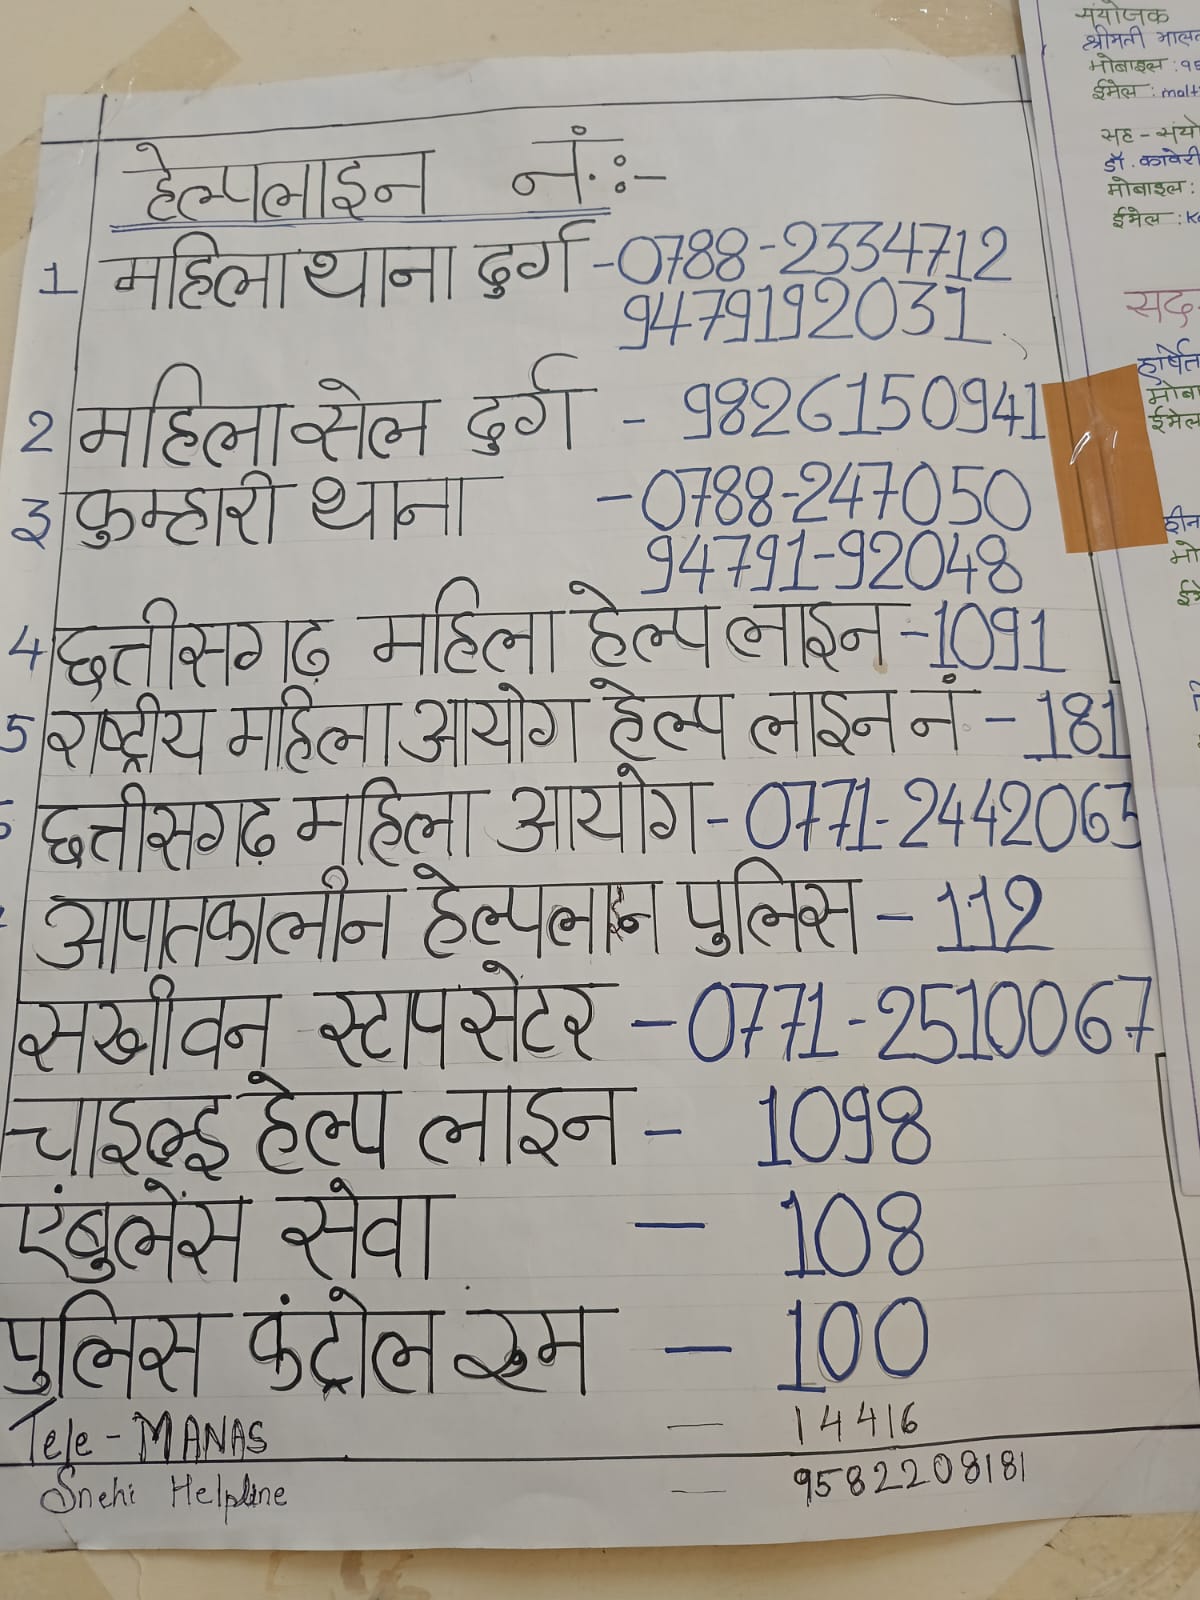 हेल्पलाइन नं.:-
1 महिला थाना दुर्ग -0788-2334712
9479192031
2 महिला सेल दुर्ग - 9826150941
3 कुम्हारी थाना -0788-247050
94791-92048
4 छत्तीसगढ़ महिला हेल्प लाइन -1091
5 राष्ट्रीय महिला आयोग हेल्प लाइन नं - 181
छत्तीसगढ़ महिला आयोग - 0771-2442063
आपातकालीन हेल्पलाइन पुलिस - 112
सखीवन स्टाप सेंटर - 0771-2510067
चाइल्ड हेल्प लाइन - 1098
एंबुलेंस सेवा - 108
पुलिस कंट्रोल रुम - 100
Tele-MANAS - 14416
Snehi Helpline - 9582208181
संयोजक
श्रीमती
मोबाइल :
ईमेल :
सह-
डॉ. कावेरी
मोबाइल :
ईमेल :